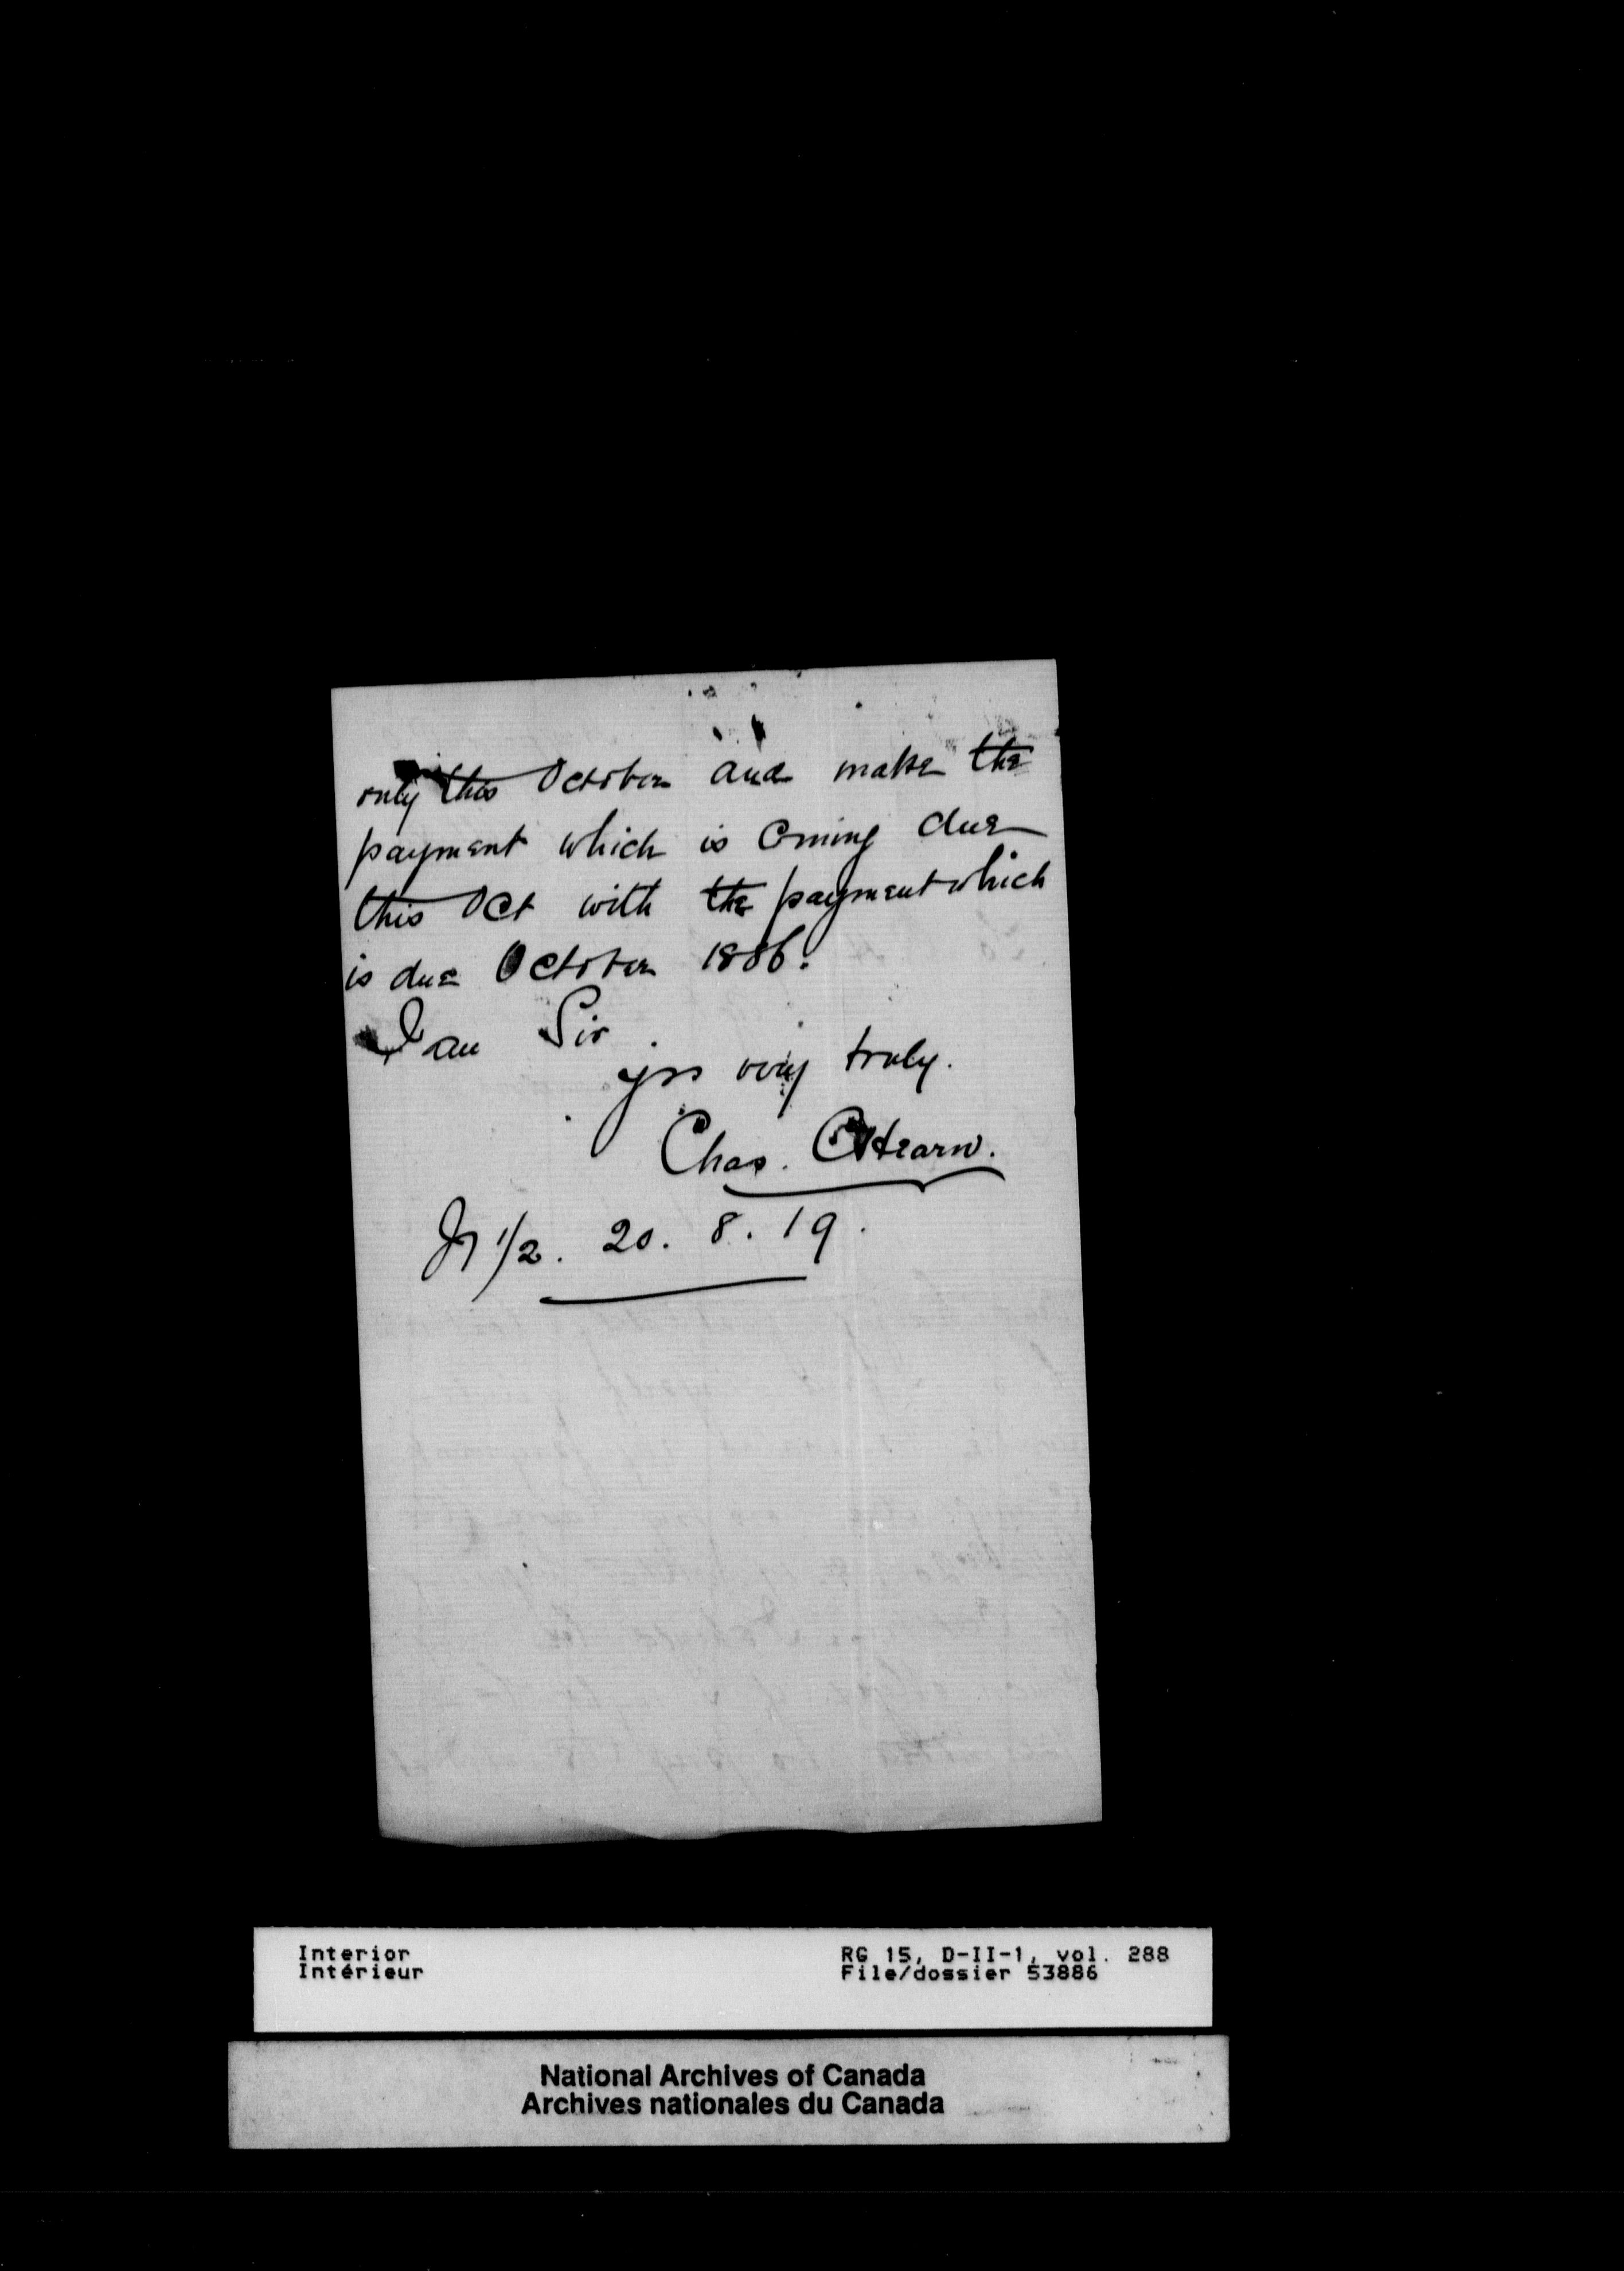 only this October and make the
payment which is Coming due
this Oct with the payment which
is due October 1886.
I am Sir
yrs very truly.
Chas. Hearn.
1/2. 20. 8. 19.
Interior
Intérieur
RG 15, D-II-1, vol. 288
File/dossier 53886
National Archives of Canada
Archives nationales du Canada